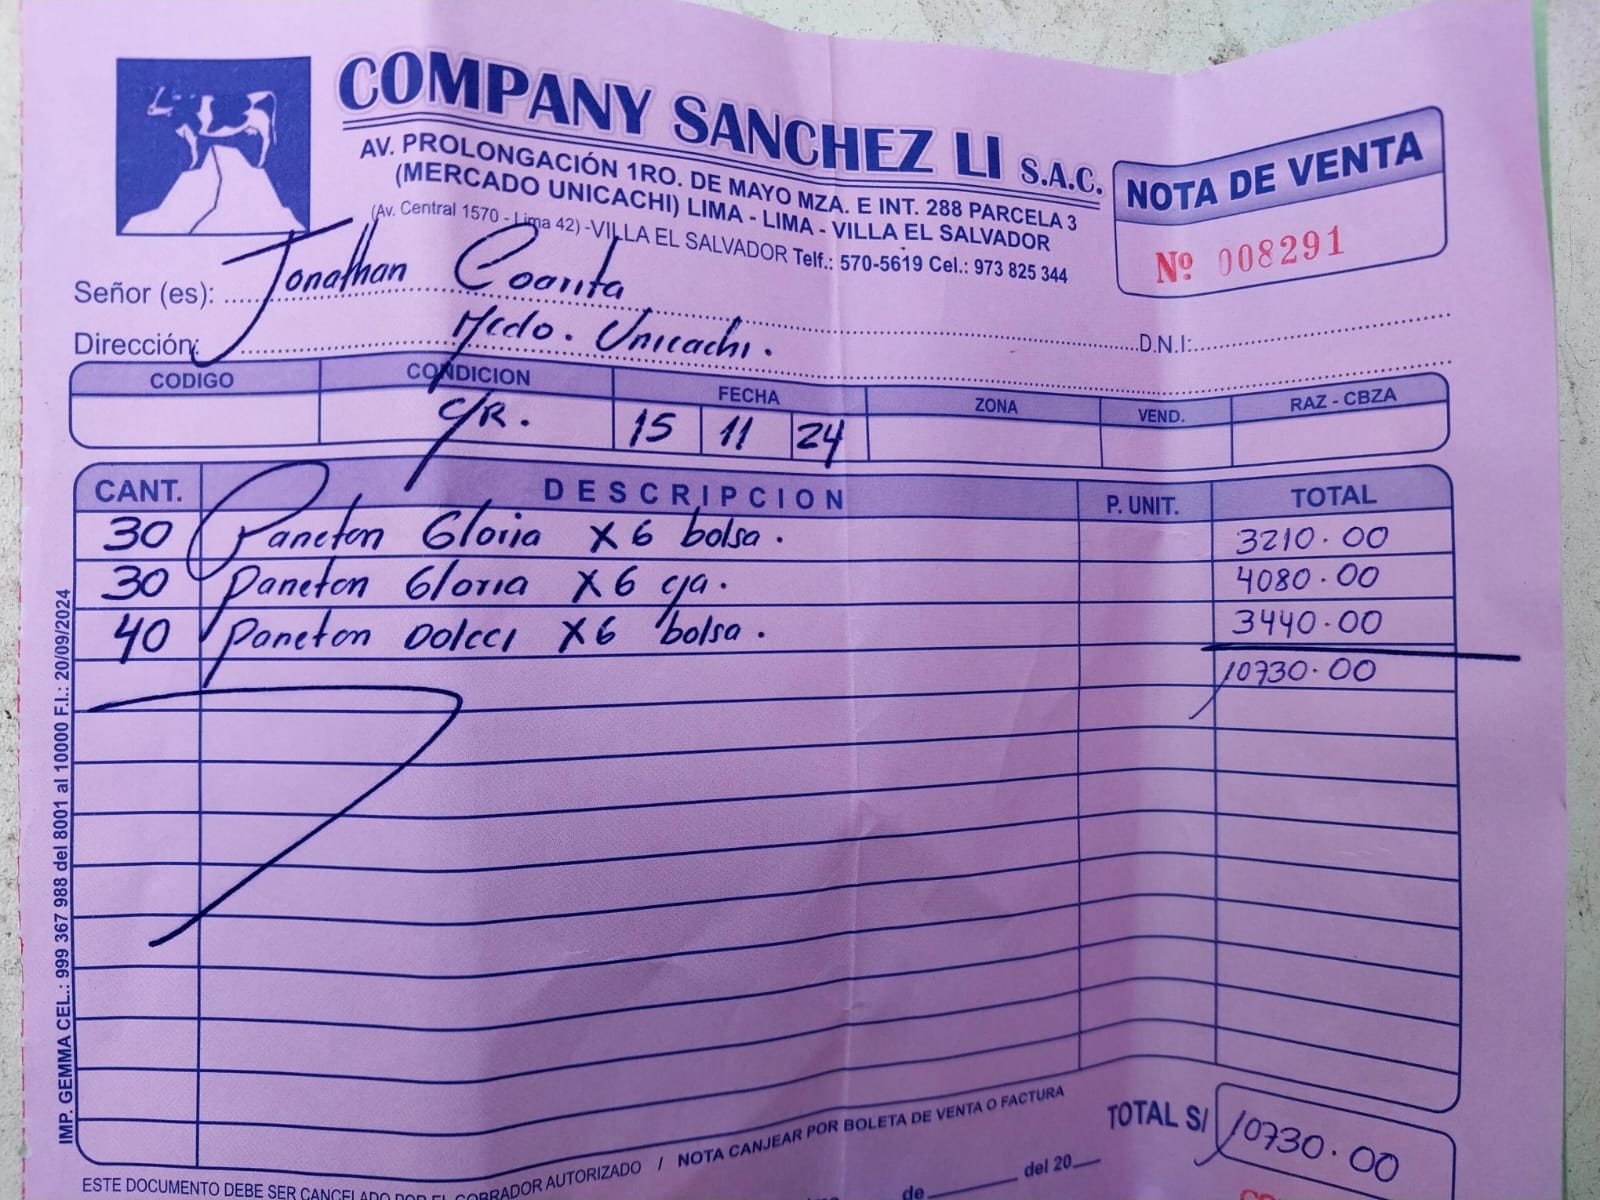 COMPANY SANCHEZ LI S.A.C.
AV. PROLONGACIÓN 1RO. DE MAYO MZA. E INT. 288 PARCELA 3
(MERCADO UNICACHI) LIMA - LIMA - VILLA EL SALVADOR
(Av. Central 1570 - Lima 42) -VILLA EL SALVADOR Telf.: 570-5619 Cel.: 973 825 344
NOTA DE VENTA
Nº 008291
Señor (es): Jonathan Coarita
D.N.I:
Dirección: Mcdo. Unicachi.
CODIGO CONDICION FECHA ZONA VEND. RAZ - CBZA
C/R. 15 11 24
CANT. DESCRIPCION P. UNIT. TOTAL
30 Paneton Gloria X 6 bolsa. 3210.00
30 paneton Gloria X 6 cja. 4080.00
40 paneton DOLCCI X6 bolsa. 3440.00
10730.00
IMP. GEMMA CEL.: 999 367 988 del 8001 al 10000 F.I.: 20/09/2024
TOTAL S/ 10730.00
ESTE DOCUMENTO DEBE SER CANCELADO POR EL COBRADOR AUTORIZADO / NOTA CANJEAR POR BOLETA DE VENTA O FACTURA
de del 20